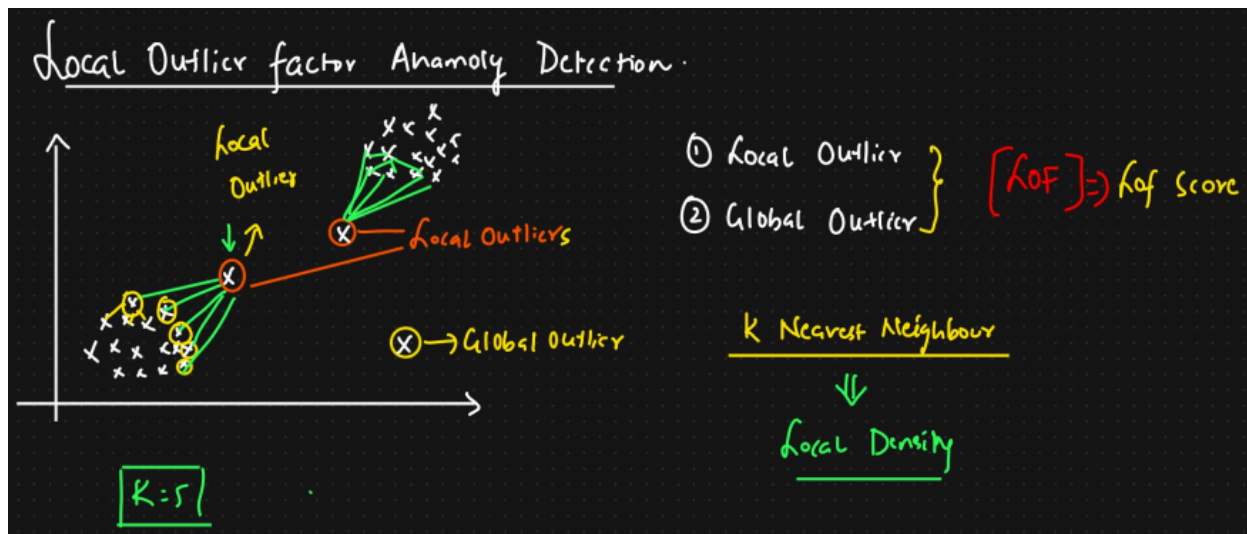 Local Outlier factor Anamoly Detection.
Local
Outlier
Local Outliers
X → Global Outlier
K=5
① Local Outlier
② Global Outlier
[LOF] ⇒ Lof Score
K Nearest Neighbour
⇓
Local Density